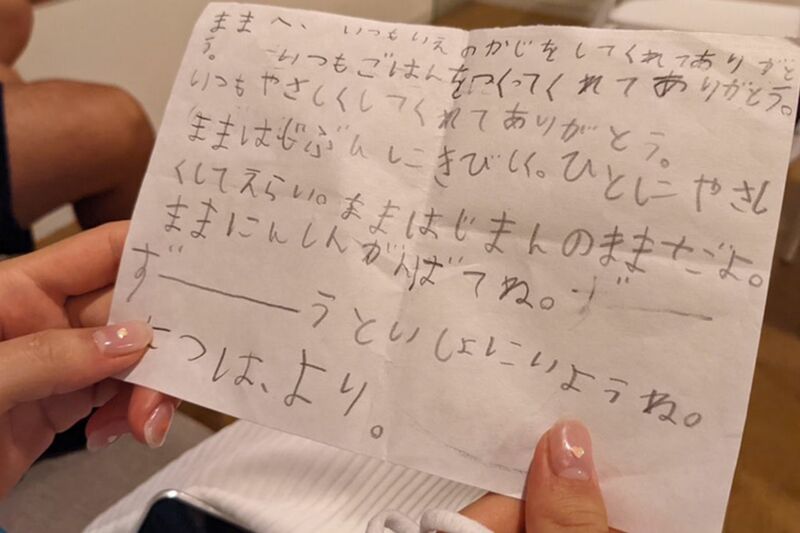 ままへ、いつもいえのかじをしてくれてありがと
う。いつもごはんをつくってくれてありがとう。
いつもやさしくしてくれてありがとう。
ままはじぶんにきびしく。ひとにやさし
くしてえらい。ままはじまんのままだよ。
ままにんしんがんばてね。ず――
ず―――うといしょにいようね。
たつは、より。